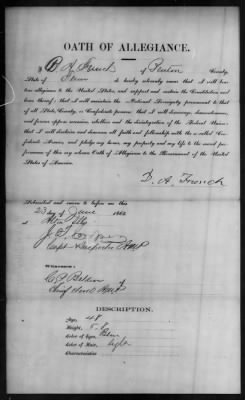 OATH OF ALLEGIANCE.
I, D. A. French of Benton County,
State of Tenn do hereby solemnly swear that I will bear
true allegiance to the United States, and support and sustain the Constitution and
laws thereof; that I will maintain the National Sovereignty paramount to that
of all State, County, or Confederate powers; that I will discourage, discountenance,
and forever oppose secession, rebellion and the disintegration of the Federal Union;
that I disclaim and denounce all faith and fellowship with the so-called Confed-
erate Armies, and pledge my honor, my property and my life to the sacred per-
formance of this my solemn Oath of Allegiance to the Government of the United
States of America.
D. A. French
Subscribed and sworn to before me this
23 day of June 186
Alton Ills
Capt
WITNESSES:
DESCRIPTION
Age, 48
Height, 5
Color of Eyes, Blue
Color of Hair, Light
Characteristics